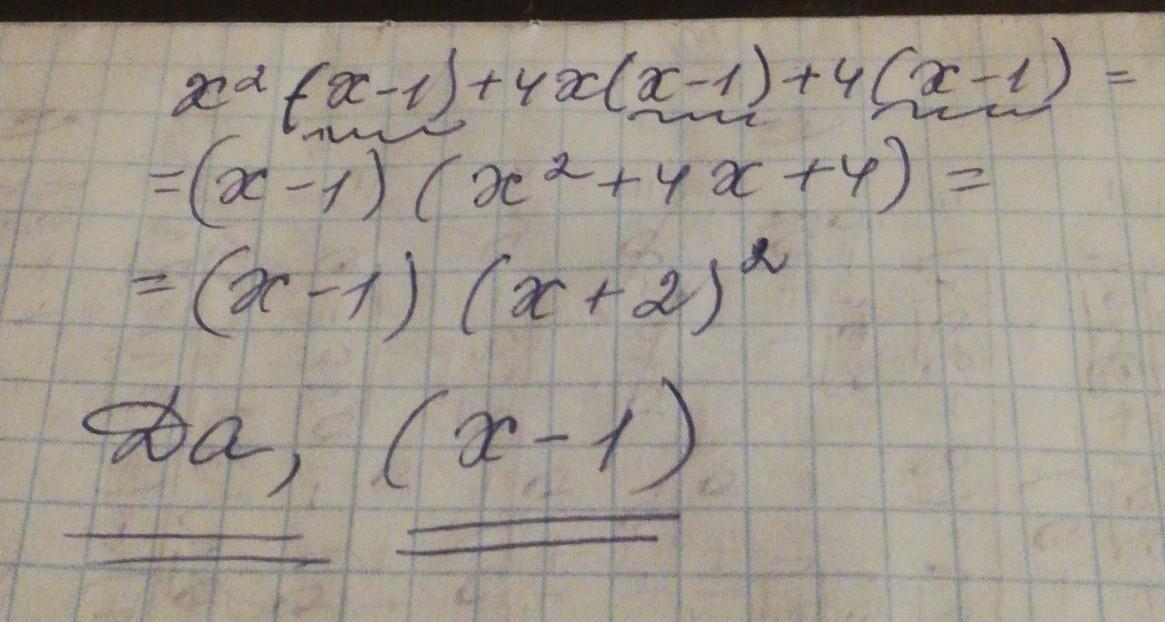 x² (x-1)+4x(x-1)+4(x-1) =
=(x-1) (x²+4x+4) =
=(x-1) (x+2)²
Да, (x-1)